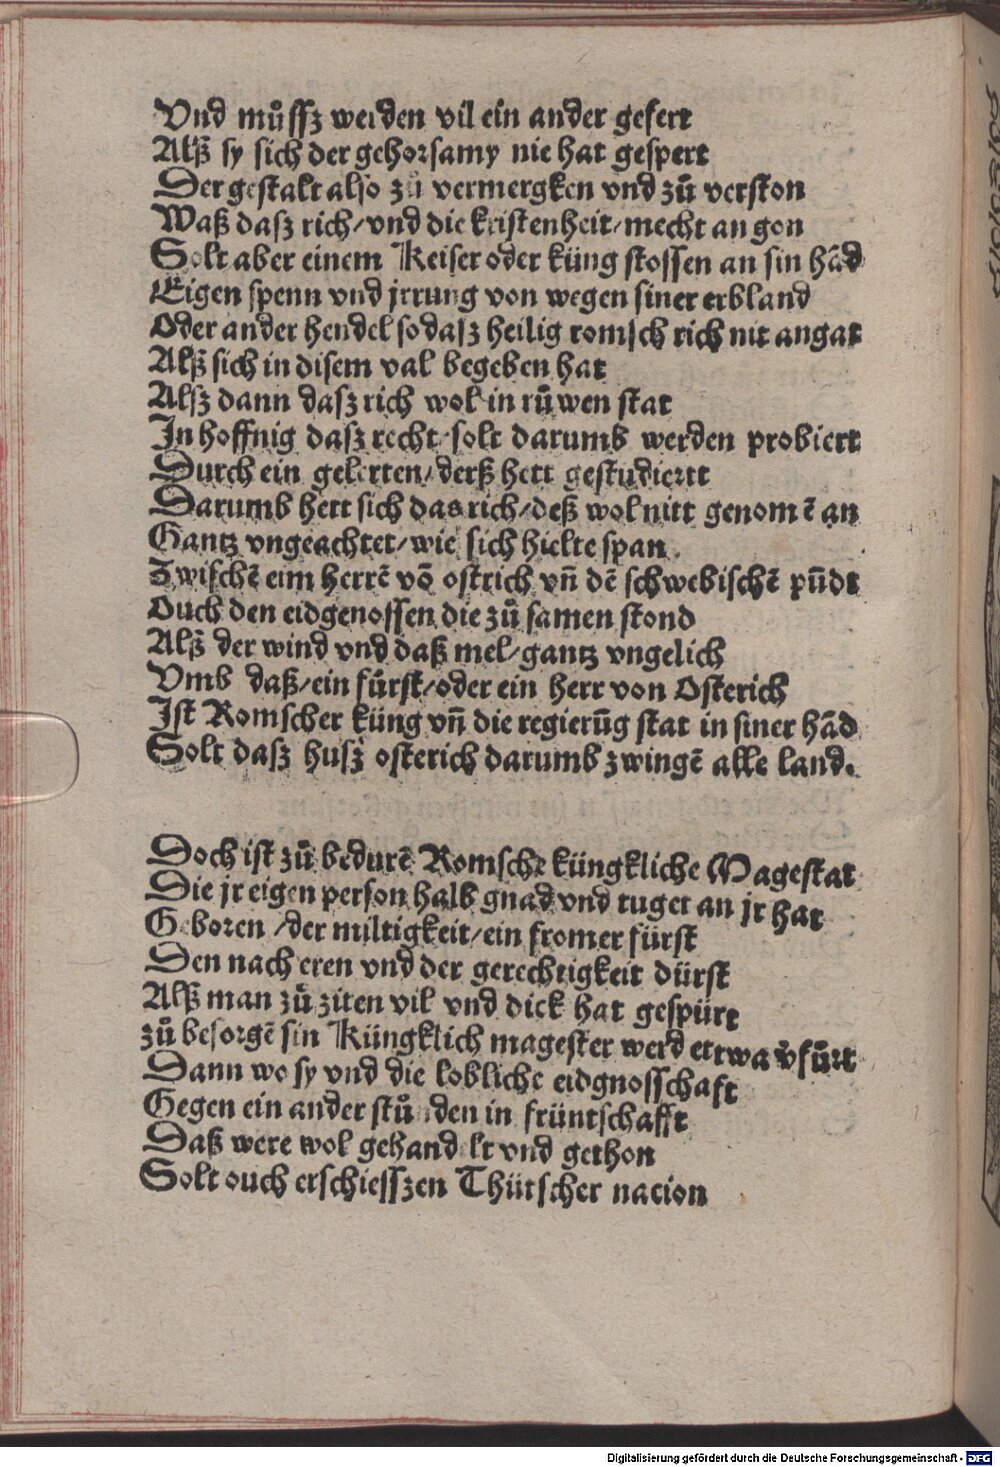 Vnd můssz werden vil ein ander gefert
Alsz sy sich der gehorsamy nie hat gespert
Der gestalt also zů vermergken vnd zů verston
Waß dasz rich/vnd die kristenheit/mecht an gon
Solt aber einem Keiser oder küng stossen an sin hãd
Eigen spenn vnd jrrung von wegen siner erbland
Oder ander hendel so dasz heilig romsch rich nit angat
Alsz sich in disem val begeben hat
Alsz dann dasz rich wol in růwen stat
In hoffnig dasz recht/solt darumb werden probiert
Durch ein gelerten/derß hett gestudiertt
Darumb hett sich das rich/deß wol nitt genomẽ an
Gantz vngeachtet/wie sich hielte span.
Zwischẽ eim herrẽ võ ostrich vñ dẽ schwebischẽ pũdt
Ouch den eidgenossen die zů samen stond
Alsz der wind vnd daß mel/gantz vngelich
Vmb daß/ein fůrst/oder ein herr von Osterich
Ist Romscher küng vñ die regierũg stat in siner hãd
Solt dasz husz osterich darumb zwingẽ alle land.
Doch ist zů bedurẽ Romsche küngkliche Magestat
Die jr eigen person halb gnad vnd tuget an jr hat
Geboren/der miltigkeit/ein fromer fürst
Den nach eren vnd der gerechtigkeit dürst
Alsz man zů ziten vil vnd dick hat gespürt
zů besorgẽ sin Küngklich magester werd ettwa v̊fůrt
Dann wo sy vnd die lobliche eidgnosschaft
Gegen ein ander stůnden in früntschafft
Daß were wol gehandelt vnd gethon
Solt ouch erschiesszen Thütscher nacion
Digitalisierung gefördert durch die Deutsche Forschungsgemeinschaft - DFG